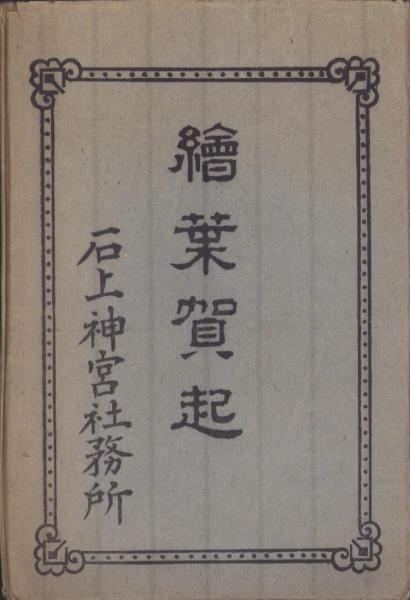 繪葉賀起
石上神宮社務所